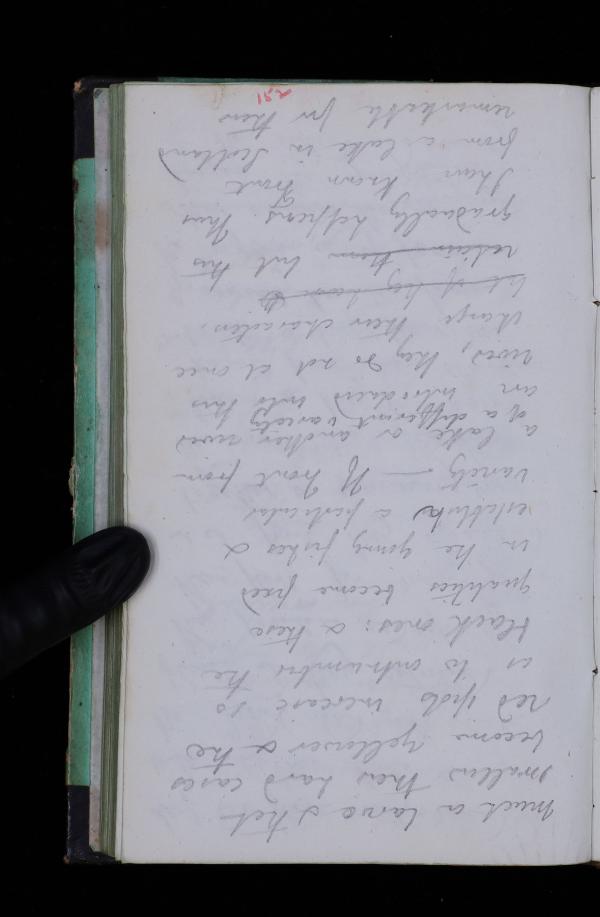 much on larvae & that
swallow their hard cases
become yellower & the
red spots increase so
as to outnumber the
black ones: & these
qualities become fixed
in the young fishes &
establish a particular
variety — If trout from
a lake or another river
of a different variety
are introduced into this
river, they do not at once
change their characters.
retain them but this
gradually happens. Thus
I have known trout
from a lake in Scotland
remarkable for their
152